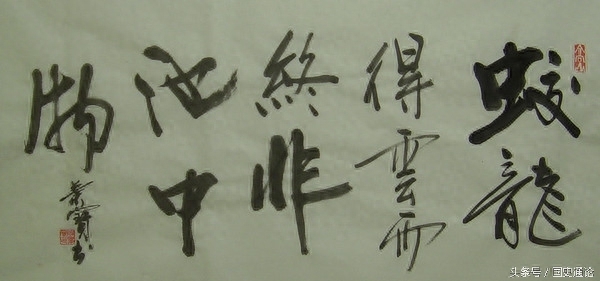 蛟龍
得雲雨
終非
池中
物
头条号 / 国史通论